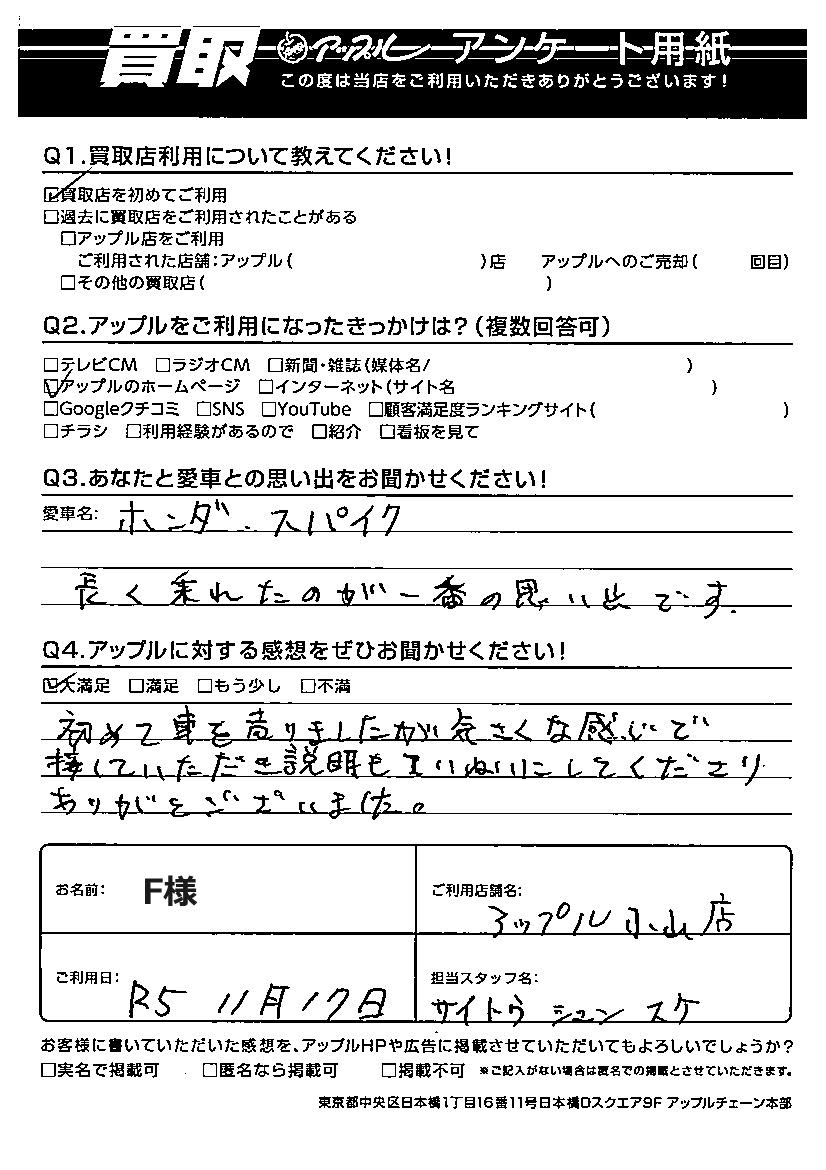 買取 アップル アンケート用紙
この度は当店をご利用いただきありがとうございます!
Q1.買取店利用について教えてください!
☑買取店を初めてご利用
□過去に買取店をご利用されたことがある
□アップル店をご利用
ご利用された店舗:アップル( )店 アップルへのご売却( 回目)
□その他の買取店( )
Q2.アップルをご利用になったきっかけは?(複数回答可)
□テレビCM □ラジオCM □新聞・雑誌(媒体名/ )
☑アップルのホームページ □インターネット(サイト名 )
□Googleクチコミ □SNS □YouTube □顧客満足度ランキングサイト( )
□チラシ □利用経験があるので □紹介 □看板を見て
Q3.あなたと愛車との思い出をお聞かせください!
愛車名: ホンダ・スパイク
長く乗れたのが一番の思い出です.
Q4.アップルに対する感想をぜひお聞かせください!
☑大満足 □満足 □もう少し □不満
初めて車を売りましたが気さくな感じで
接していただき説明もていねいにしてくださり
ありがとうございました。
お名前: F様
ご利用店舗名:
アップル小山店
ご利用日: R5 11月17日
担当スタッフ名:
サイトウ シュンスケ
お客様に書いていただいた感想を、アップルHPや広告に掲載させていただいてもよろしいでしょうか?
□実名で掲載可 □匿名なら掲載可 □掲載不可 ※ご記入がない場合は匿名での掲載とさせていただきます。
東京都中央区日本橋1丁目16番11号日本橋Dスクエア9F アップルチェーン本部